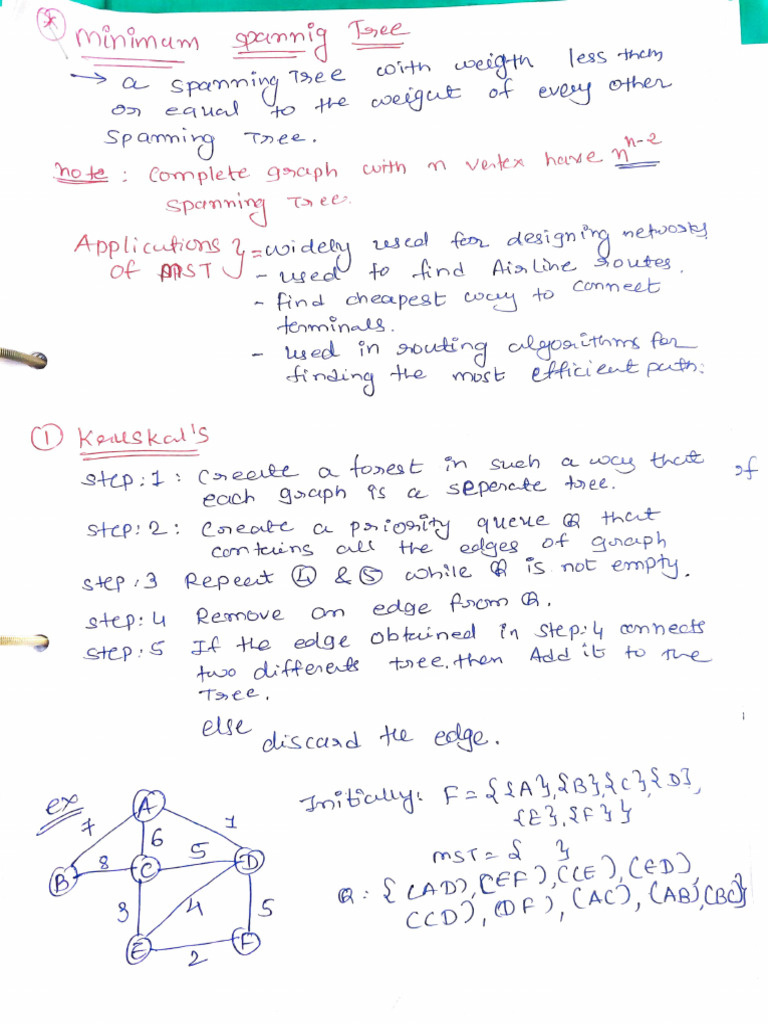 * Minimum Spannig Tree
→ a spanning Tree with weigth less them
or equal to the weigut of every other
Spanning Tree.
note: Complete graph with n vertex have n^n-2
Spanning Tree.
Applications } = widely used for designing networks.
of MST - used to find Airline routes.
- find cheapest way to connect
terminals.
- used in routing algorithms for
finding the most efficient path.
① Kruskal's
Step:1: Create a forest in such a way that of
each graph is a seperate tree.
Step:2: Create a priority queue Q that
contains all the edges of graph
Step:3 Repeat ④ & ⑤ while Q is not empty.
Step:4 Remove an edge from Q.
Step:5 If the edge obtained in step:4 connects
two differents tree, then Add it to the
Tree.
else
discard the edge.
ex
Initially: F = {{A},{B},{C},{D},
{E},{F}}
MST = { }
Q: {(AD), (EF), (CE), (ED),
(CD), (DF), (AC), (AB), (BC)}
A
7 6 1
B 8 C 5 D
3 4 5
E 2 F